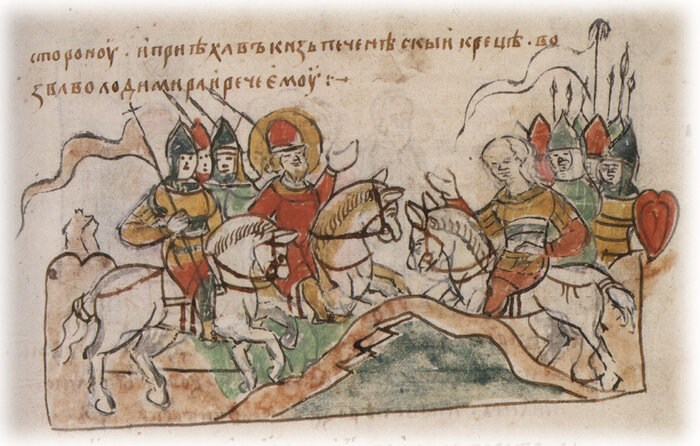 стороноу · и приѣха въ кнзь печенѣскыи к рецѣ · во
зва володимира и рече емоу :~